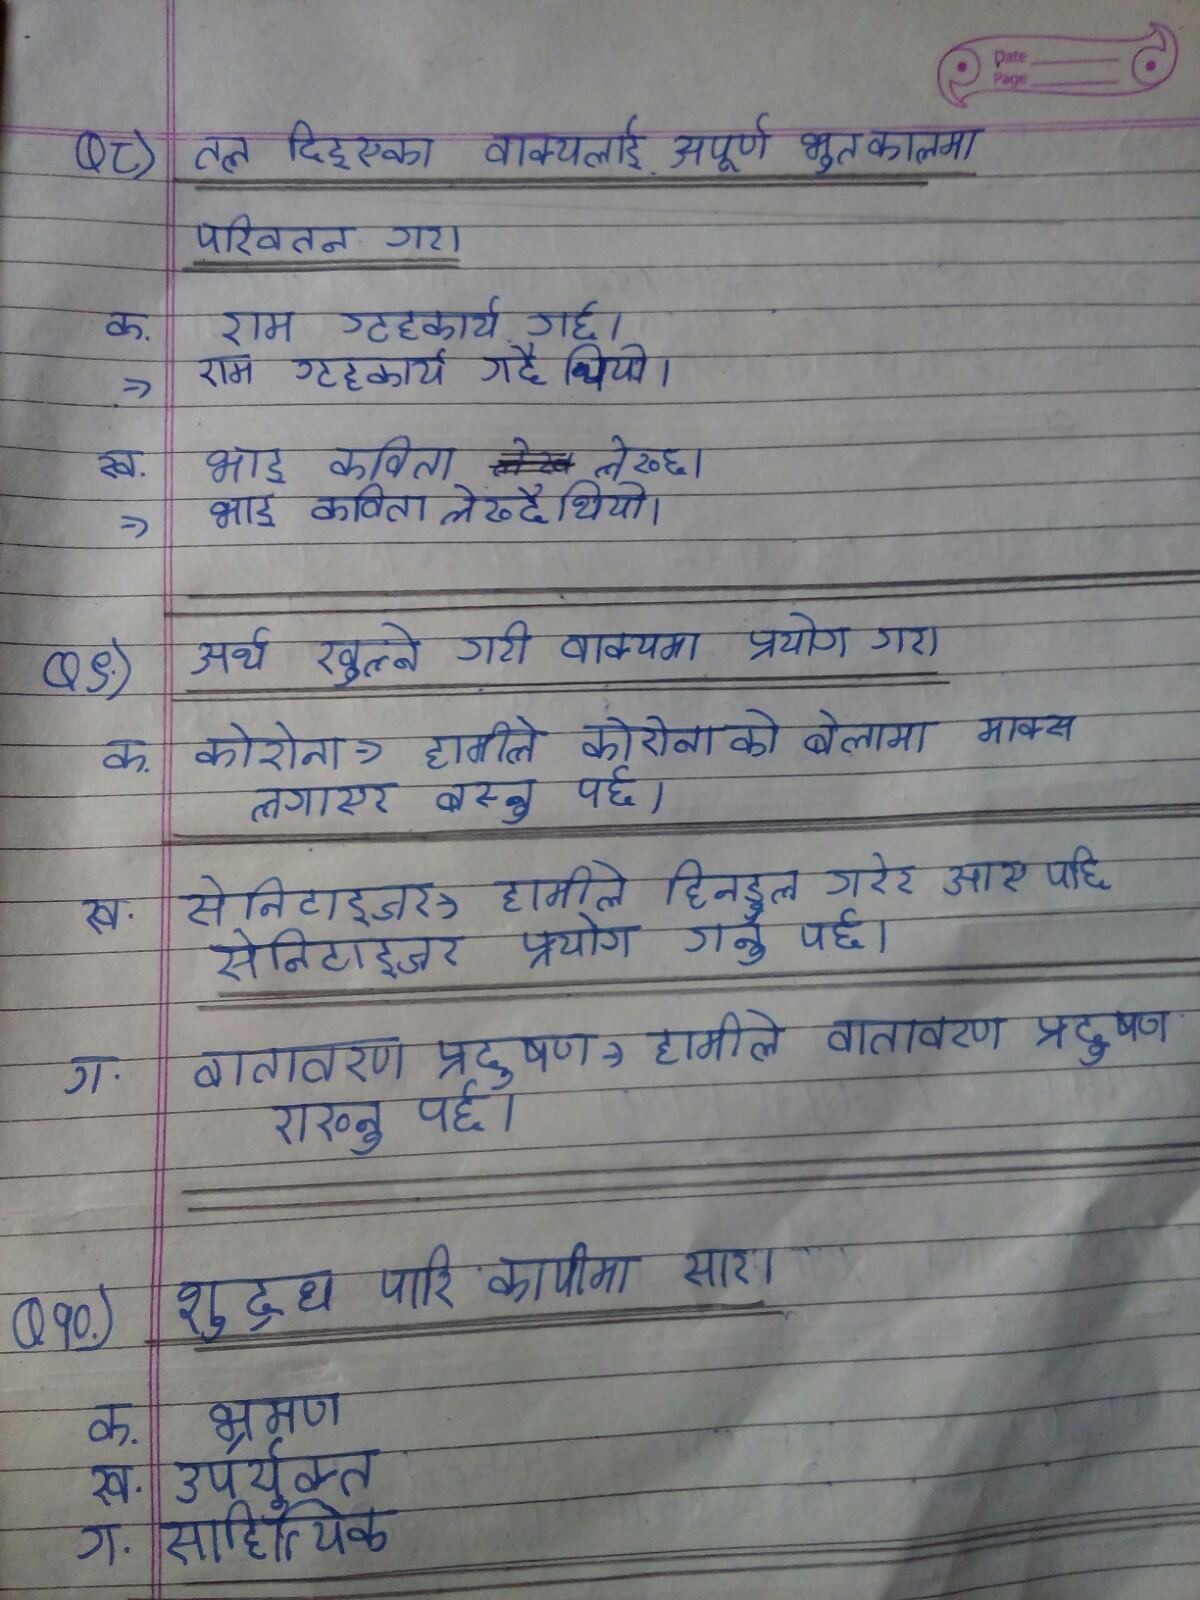 Date
Page
Q८) तल दिइएका वाक्यलाई अपूर्ण भुतकालमा
परिवतन गर।
क. राम गृहकार्य गर्छ।
⇒ राम गृहकार्य गर्दै थियो।
ख. भाइ कविता लेख्छ।
⇒ भाइ कविता लेख्दै थियो।
Q९.) अर्थ खुल्ने गरी वाक्यमा प्रयोग गर।
क. कोरोना ⇒ हामीले कोरोनाको बेलामा माक्स
लगाएर बस्नु पर्छ।
ख. सेनिटाइजर ⇒ हामीले हिनडुल गरेर आए पछि
सेनिटाइजर प्रयोग गर्नु पर्छ।
ग. वातावरण प्रदुषण ⇒ हामीले वातावरण प्रदुषण
राख्नु पर्छ।
Q१०.) शुद्ध पारि कापीमा सार।
क. भ्रमण
ख. उपर्युक्त
ग. साहित्यिक